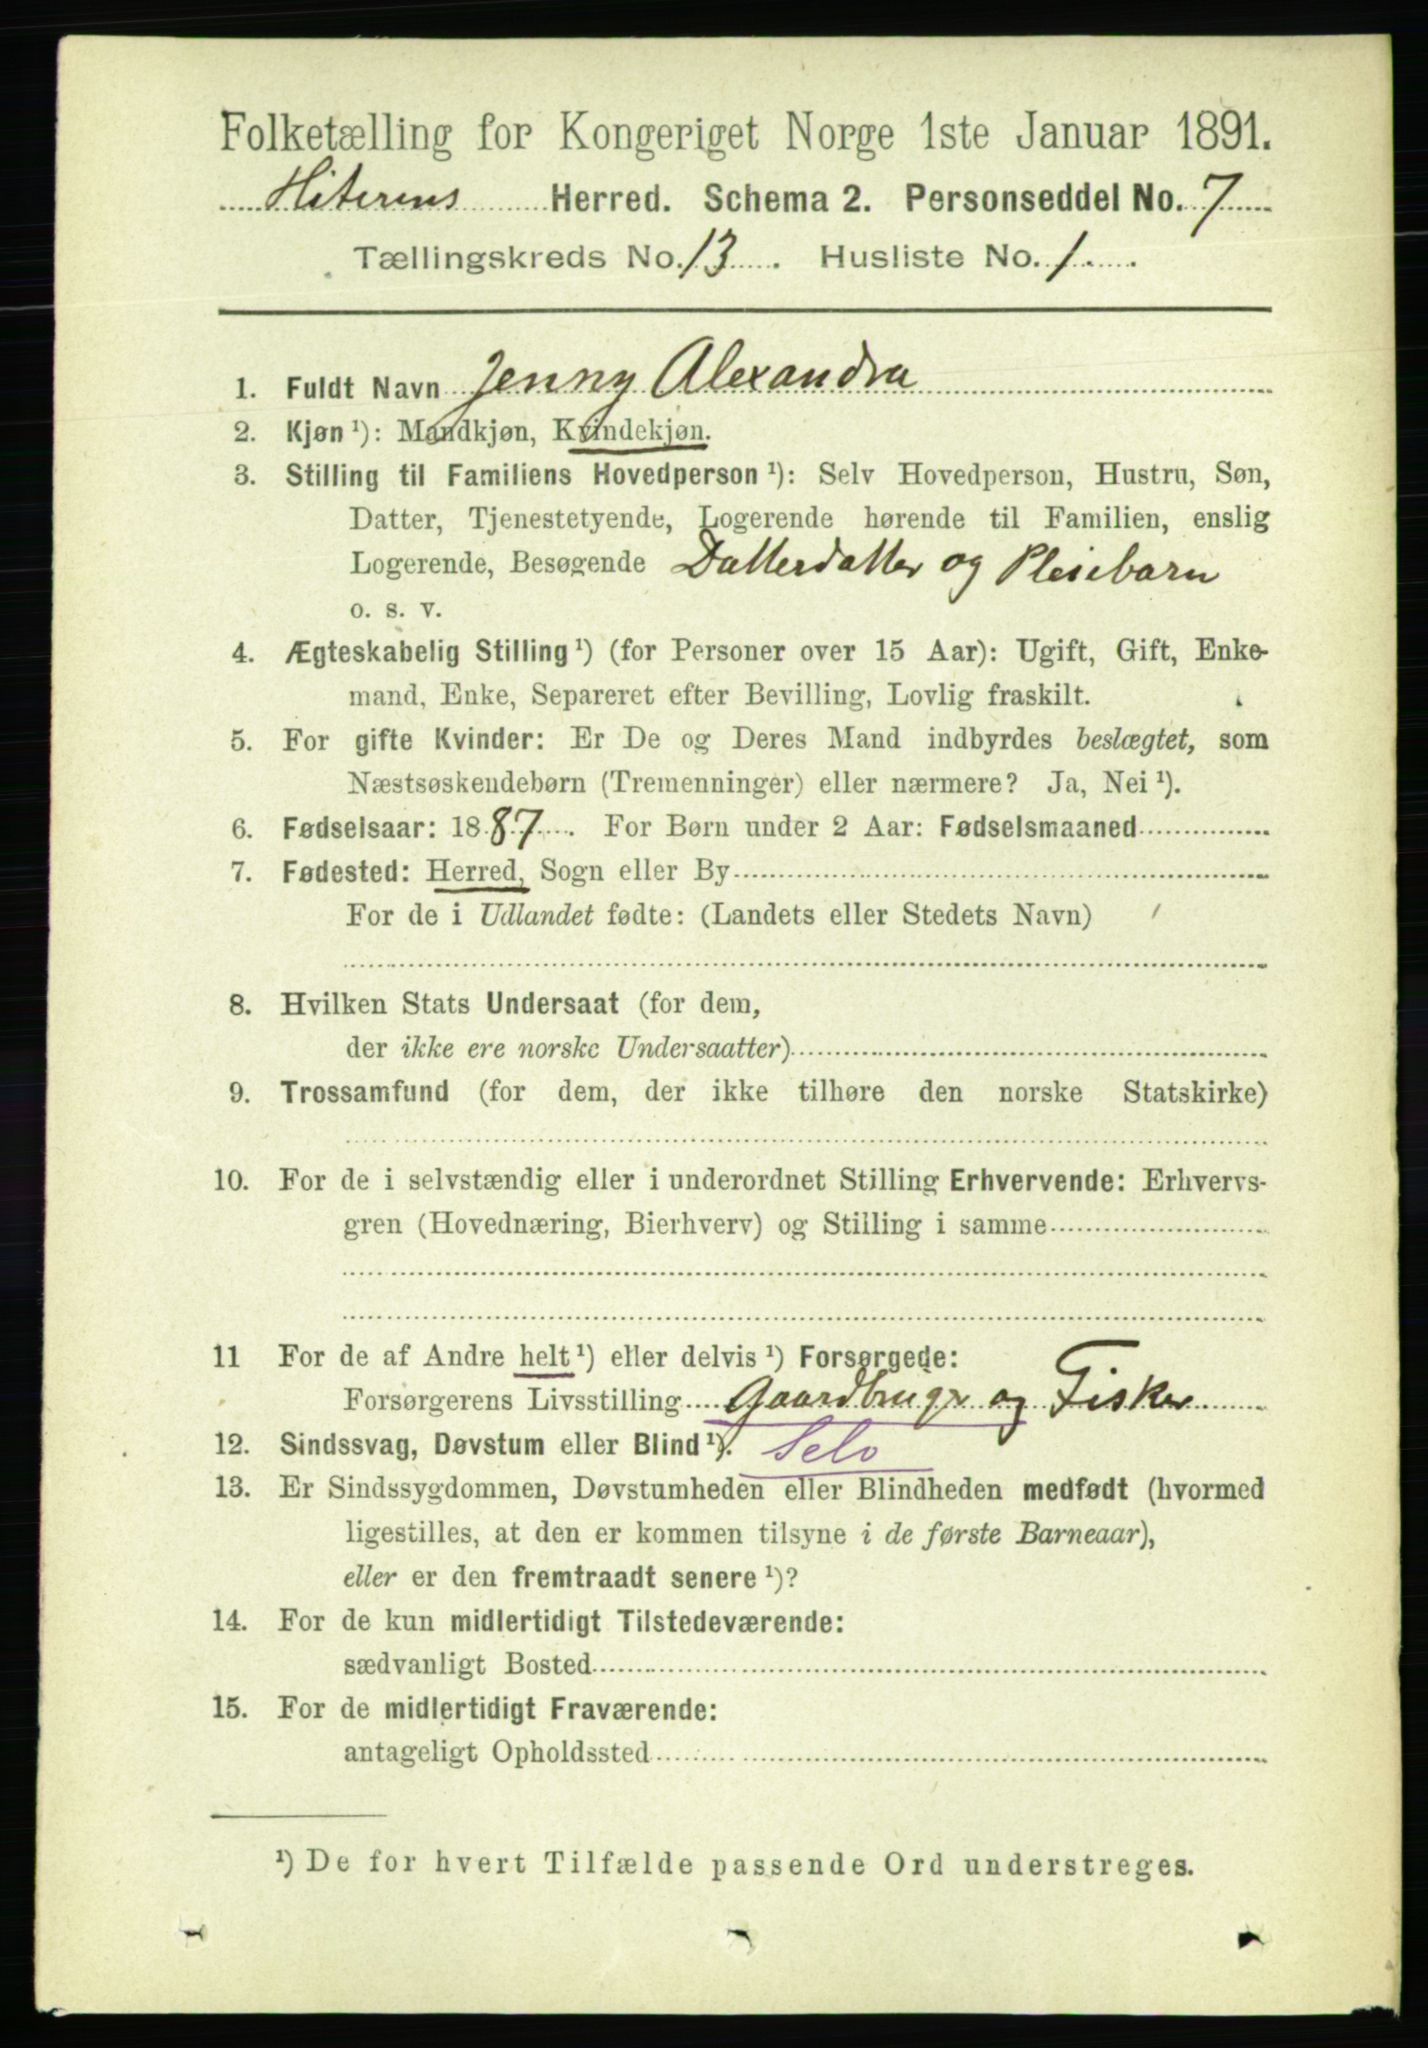 Folketælling for Kongeriget Norge 1ste Januar 1891.
Hiterens Herred. Schema 2. Personseddel No. 7
Tællingskreds No. 13. Husliste No. 1.
1. Fuldt Navn Jenny Alexandra
2. Kjøn ¹): Mandkjøn, Kvindekjøn.
3. Stilling til Familiens Hovedperson ¹): Selv Hovedperson, Hustru, Søn,
Datter, Tjenestetyende, Logerende hørende til Familien, enslig
Logerende, Besøgende Datterdatter og Pleiebarn
o. s. v.
4. Ægteskabelig Stilling ¹) (for Personer over 15 Aar): Ugift, Gift, Enke-
mand, Enke, Separeret efter Bevilling, Lovlig fraskilt.
5. For gifte Kvinder: Er De og Deres Mand indbyrdes beslægtet, som
Næstsøskendebørn (Tremenninger) eller nærmere? Ja, Nei ¹).
6. Fødselsaar: 1887. For Børn under 2 Aar: Fødselsmaaned
7. Fødested: Herred, Sogn eller By
For de i Udlandet fødte: (Landets eller Stedets Navn)
8. Hvilken Stats Undersaat (for dem,
der ikke ere norske Undersaatter)
9. Trossamfund (for dem, der ikke tilhøre den norske Statskirke)
10. For de i selvstændig eller i underordnet Stilling Erhvervende: Erhvervs-
gren (Hovednæring, Bierhverv) og Stilling i samme
11 For de af Andre helt ¹) eller delvis ¹) Forsørgede:
Forsørgerens Livsstilling Gaardbrugr og Fisker
12. Sindssvag, Døvstum eller Blind ¹). Selv
13. Er Sindssygdommen, Døvstumheden eller Blindheden medfødt (hvormed
ligestilles, at den er kommen tilsyne i de første Barneaar),
eller er den fremtraadt senere ¹)?
14. For de kun midlertidigt Tilstedeværende:
sædvanligt Bosted
15. For de midlertidigt Fraværende:
antageligt Opholdssted
¹) De for hvert Tilfælde passende Ord understreges.